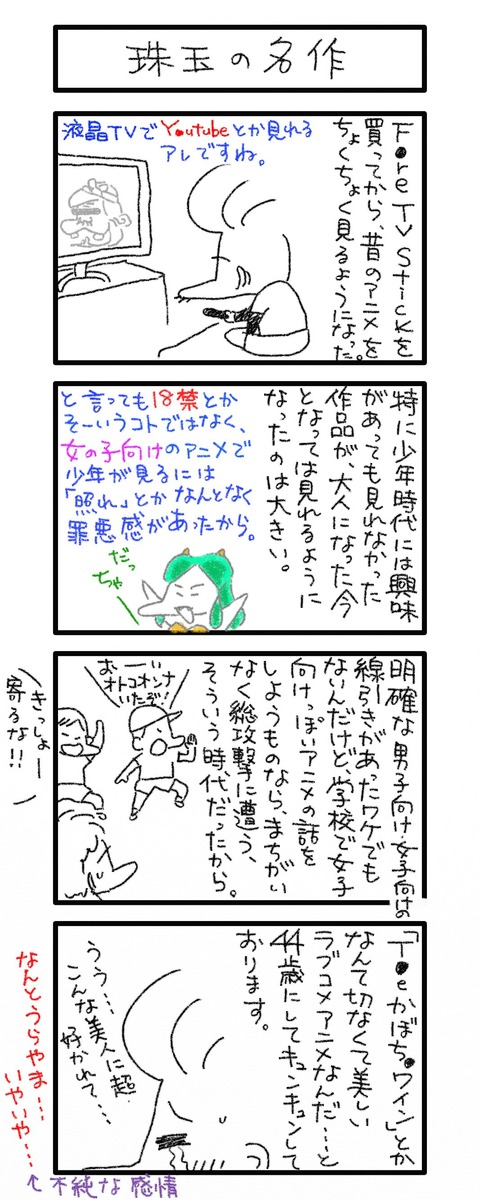 珠玉の名作
F●re TV Stickを
買ってから、昔のアニメを
ちょくちょく見るようになった。
液晶TVでY●utubeとか見れる
アレですね。
特に少年時代には興味
があっても見れなかった
作品が、大人になった今
となっては見れるように
なったのは大きい。
と言っても18禁とか
そーいうコトではなく、
女の子向けのアニメで
少年が見るには
「照れ」とかなんとなく
罪悪感があったから。
だっ
ちゃ
明確な男子向け女子向けの
線引きがあったワケでも
ないんだけど、学校で女子
向けっぽいアニメの話を
しようものなら、まちがい
なく総攻撃に遭う、
そういう時代だったから。
おーーい
オトコオンナ
いたぞ!
きっしょー
寄るな!!
「T●eかぼち●ワイン」とか
なんて切なくて美しい
ラブコメアニメなんだ…と
44歳にしてキュンキュンして
おります。
うう…
こんな美人に超
好かれて…
なんとうらやま…
いやいや…
↑不純な感情